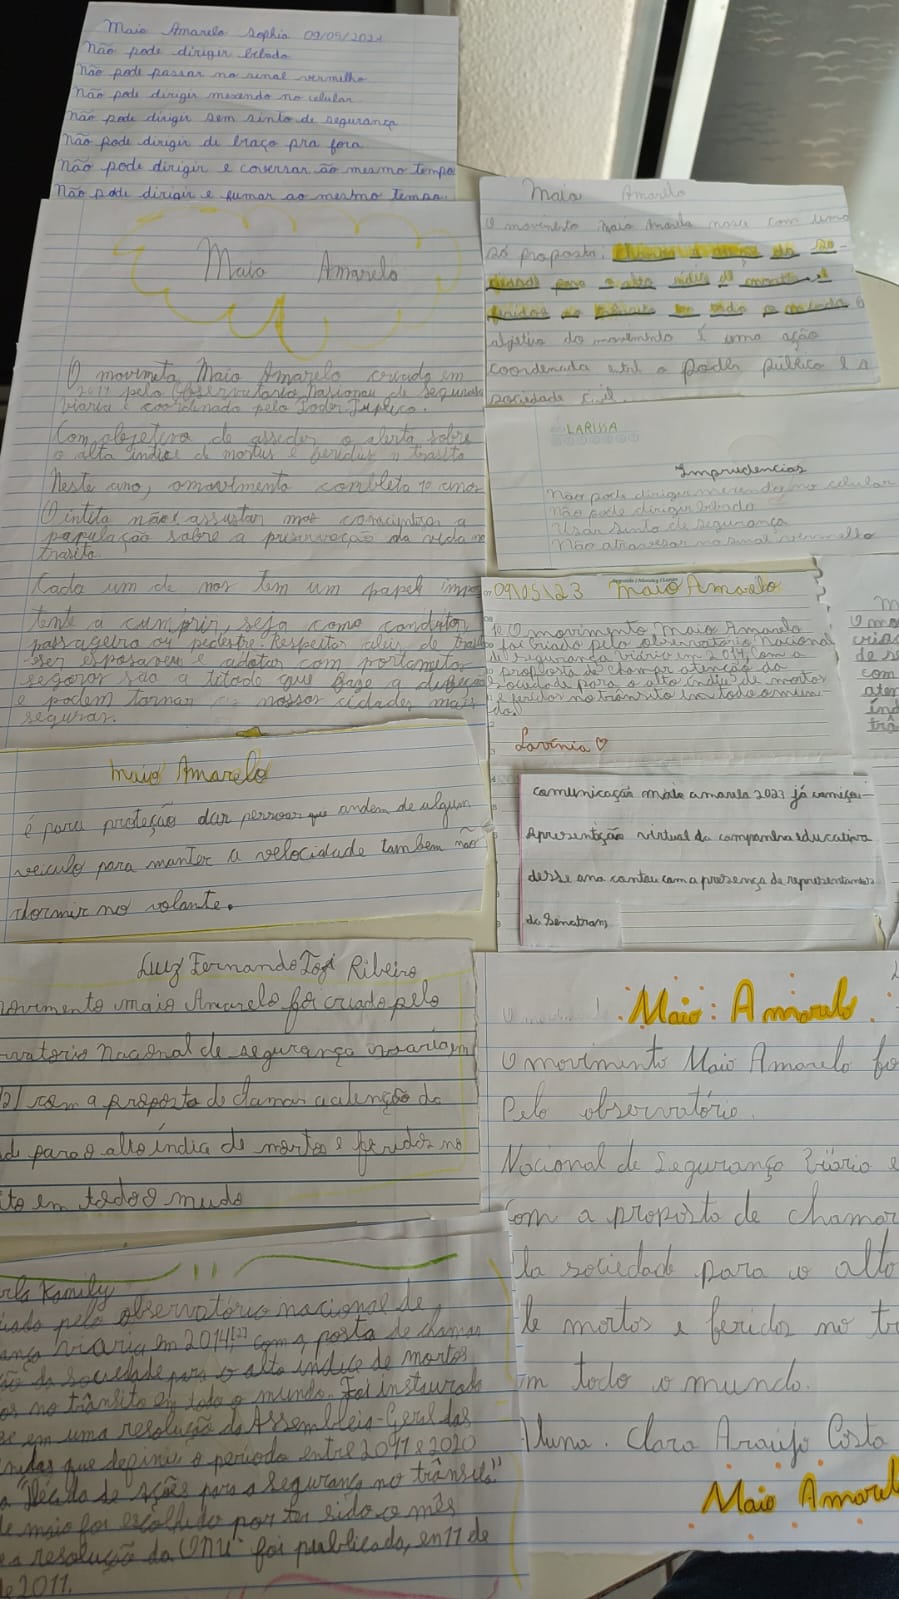 Maio Amarelo Sophia 09/05/2021
Não pode dirigir bebado
Não pode passar no sinal vermelho
Não pode dirigir mexendo no celular
Não pode dirigir sem sinto de segurança
Não pode dirigir de braço pra fora
Não pode dirigir e coversar ao mesmo tempo
Não pode dirigir e fumar ao mesmo tempo.
Maio Amarelo
O movimeta Maio Amarelo criado em
2011 pelo Observatório Nasional de segurasa
viaria e coordenado pelo Poder
Com objetivo de a alerta sobre
o alta indice de mortus e feridus n trasito
Neste ano, omovimento completo 10 anos
O não é assustar mas a
papulação sabre a preservação da vida no
trasito.
Cada um de nos tem um papel impo
tente a cumprir, seja como conditor
passageiro ou pedestre. Respeitar de
ser e adotar com
segoros são a que a
e podem tornar nossas cidades mais
seguras.
Maio Amarelo
O movimento maio Amarelo nasce com uma
só proposta. a do so-
para o alto indice de mortes e
feridos no em todo o O
objetivo do movimento é uma ação
coordenada o poder público e a
sociedade civil.
LARISSA
Imprudencias
Não pode dirigir mexendo no celular
Não pode dirigir bebado
Usar sinto de segurança
Não atravessar no sinal vermelho
09/05/23 Maio Amarelo
O movimento Maio Amarelo
foi criado pelo observatório Nacional
de segurança viário em 2014, com a
proposta de chamar atenção da
sociedade para o alto índice de mortos
e feridos no trânsito em todo o mun-
do.
Lavínia ♡
M
O mo
criad
de se
com
aten
índ
trâ
Maio Amarelo
é para proteção dar pessoas que andem de algum
veiculo para manter a velocidade tambem não
dormir no volante.
comunicação maio amarelo 2023 já começa-
Apresentação virtual da companha educativa
desse ano contou com a presença de representantes
da Senatram
Luiz Fernando Ribeiro
movimento maio Amarelo foi criado pelo
rvatorio Nacional de segurança em
2] com a proposta de clamar a atenção da
de para o alto índia de mortos e feridos no
ito em todo o mudo
Maio: Amarelo
O movimento Maio Amarelo fo
Pelo observatório
Nacional de Segurança Viário e
Com a proposta de chamar
da sociedade para o alto
de mortos e feridos no tr
em todo o mundo.
Aluna. Clara Araújo Costa
Maio Amarel
Kamilly
iado pelo observatório nacional de
ança viaria em 2014[2], com a posta de chamar
ção da sociedade para o alto índice de mortos
os no trânsito em todo o mundo. Foi
se em uma resolução da Assembleia-Geral das
nidas que definiu o período entre 2011 e 2020
a "Década de Ações para a segurança no trânsito"
de maio foi escolhido por ter sido o mês
e a resolução da ONU foi publicada, en 11 de
de 2011.